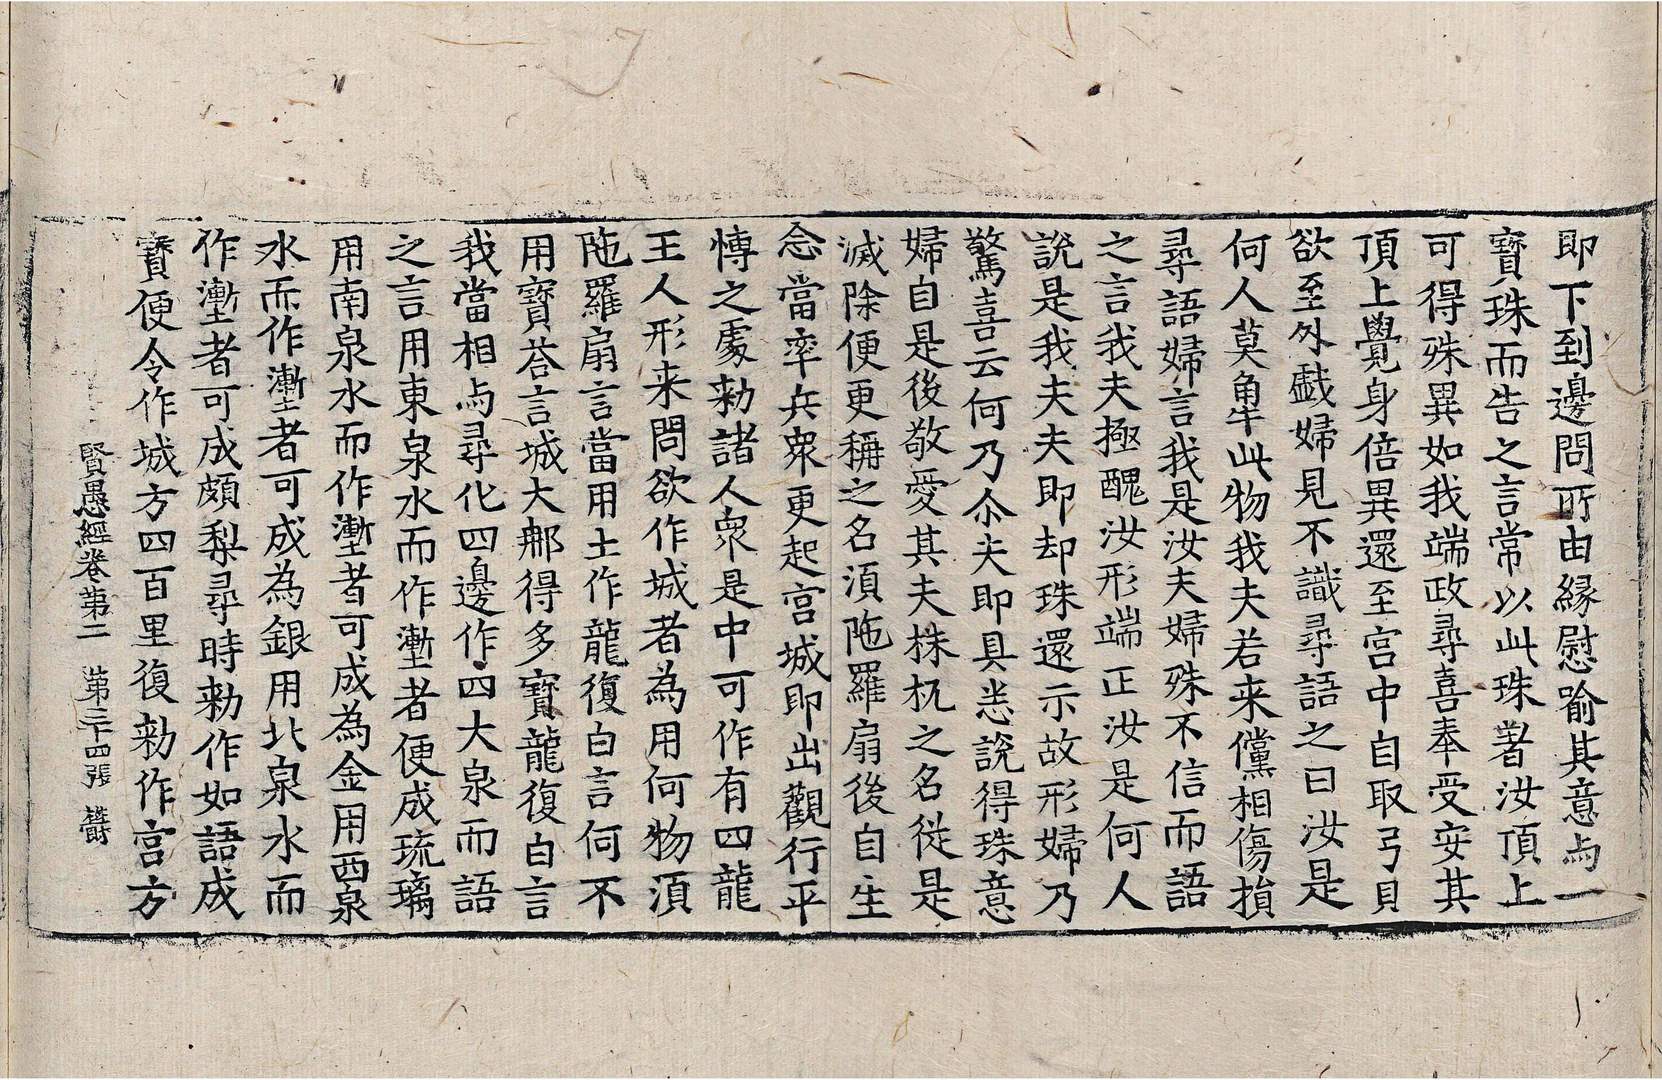 即下到邊問所由緣慰喻其意与一
寶珠而告之言常以此珠著汝頂上
可得殊異如我端政尋喜奉受安其
頂上覺身倍異還至宮中自取弓貝
欲至外戱婦見不識尋語之曰汝是
何人莫犎此物我夫若来儻相傷損
尋語婦言我是汝夫婦殊不信而語
之言我夫極醜汝形端正汝是何人
說是我夫夫即却珠還示故形婦乃
驚喜云何乃尒夫即具悉說得珠意
婦自是後敬愛其夫株杌之名從是
滅除便更稱之名湏陁羅扇後自生
念當率兵衆更起宮城即出觀行平
慱之處勑諸人衆是中可作有四龍
王人形来問欲作城者為用何物湏
陁羅扇言當用土作龍復白言何不
用寶荅言城大那得多寶龍復白言
我當相与尋化四邊作四大泉而語
之言用東泉水而作壍者便成琉璃
用南泉水而作壍者可成為金用西泉
水而作壍者可成為銀用北泉水而
作壍者可成頗梨尋時勑作如語成
寶便令作城方四百里復勑作宮方
賢愚經卷第二 第二十四張